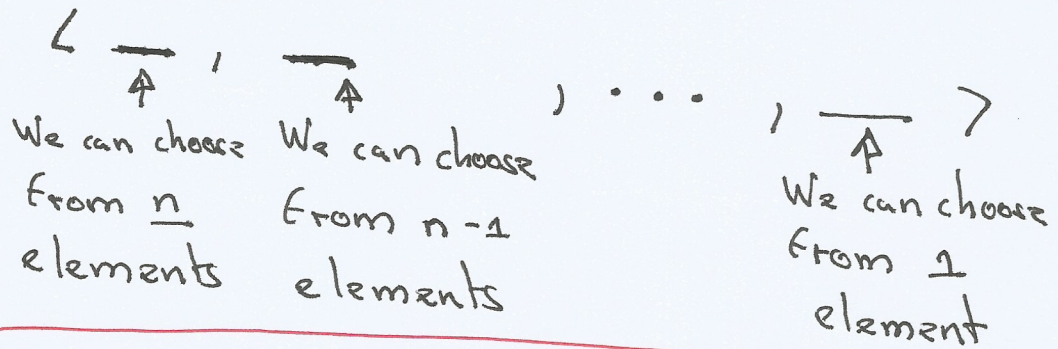 < __ , __ , ... , __ >
We can choose from n elements
We can choose from n-1 elements
We can choose from 1 element